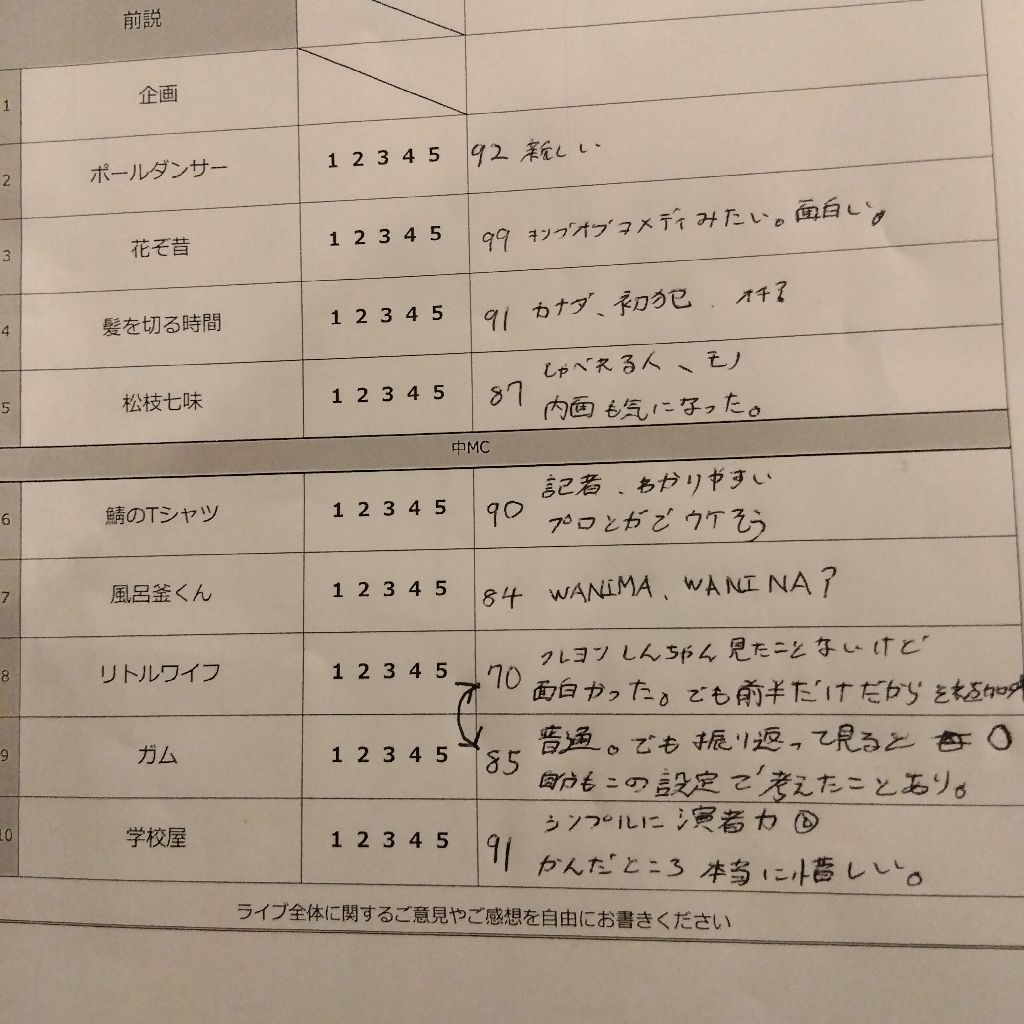 前説
1 企画
2 ポールダンサー 1 2 3 4 5 92 新しい
3 花ぞ昔 1 2 3 4 5 99 キングオブコメディみたい。面白い。
4 髪を切る時間 1 2 3 4 5 91 カナダ、初犯、オチ?
5 松枝七味 1 2 3 4 5 87 しゃべれる人、モノ
内面も気になった。
中MC
6 鯖のTシャツ 1 2 3 4 5 90 記者、わかりやすい
プロとかでウケそう
7 風呂釜くん 1 2 3 4 5 84 WANIMA、WANINA?
8 リトルワイフ 1 2 3 4 5 70 クレヨンしんちゃん見たことないけど
面白かった。でも前半だけだから
9 ガム 1 2 3 4 5 85 普通。でも振り返って見ると
自分もこの設定で考えたことあり。
10 学校屋 1 2 3 4 5 91 シンプルに演者力
かんだところ本当に惜しい。
ライブ全体に関するご意見やご感想を自由にお書きください